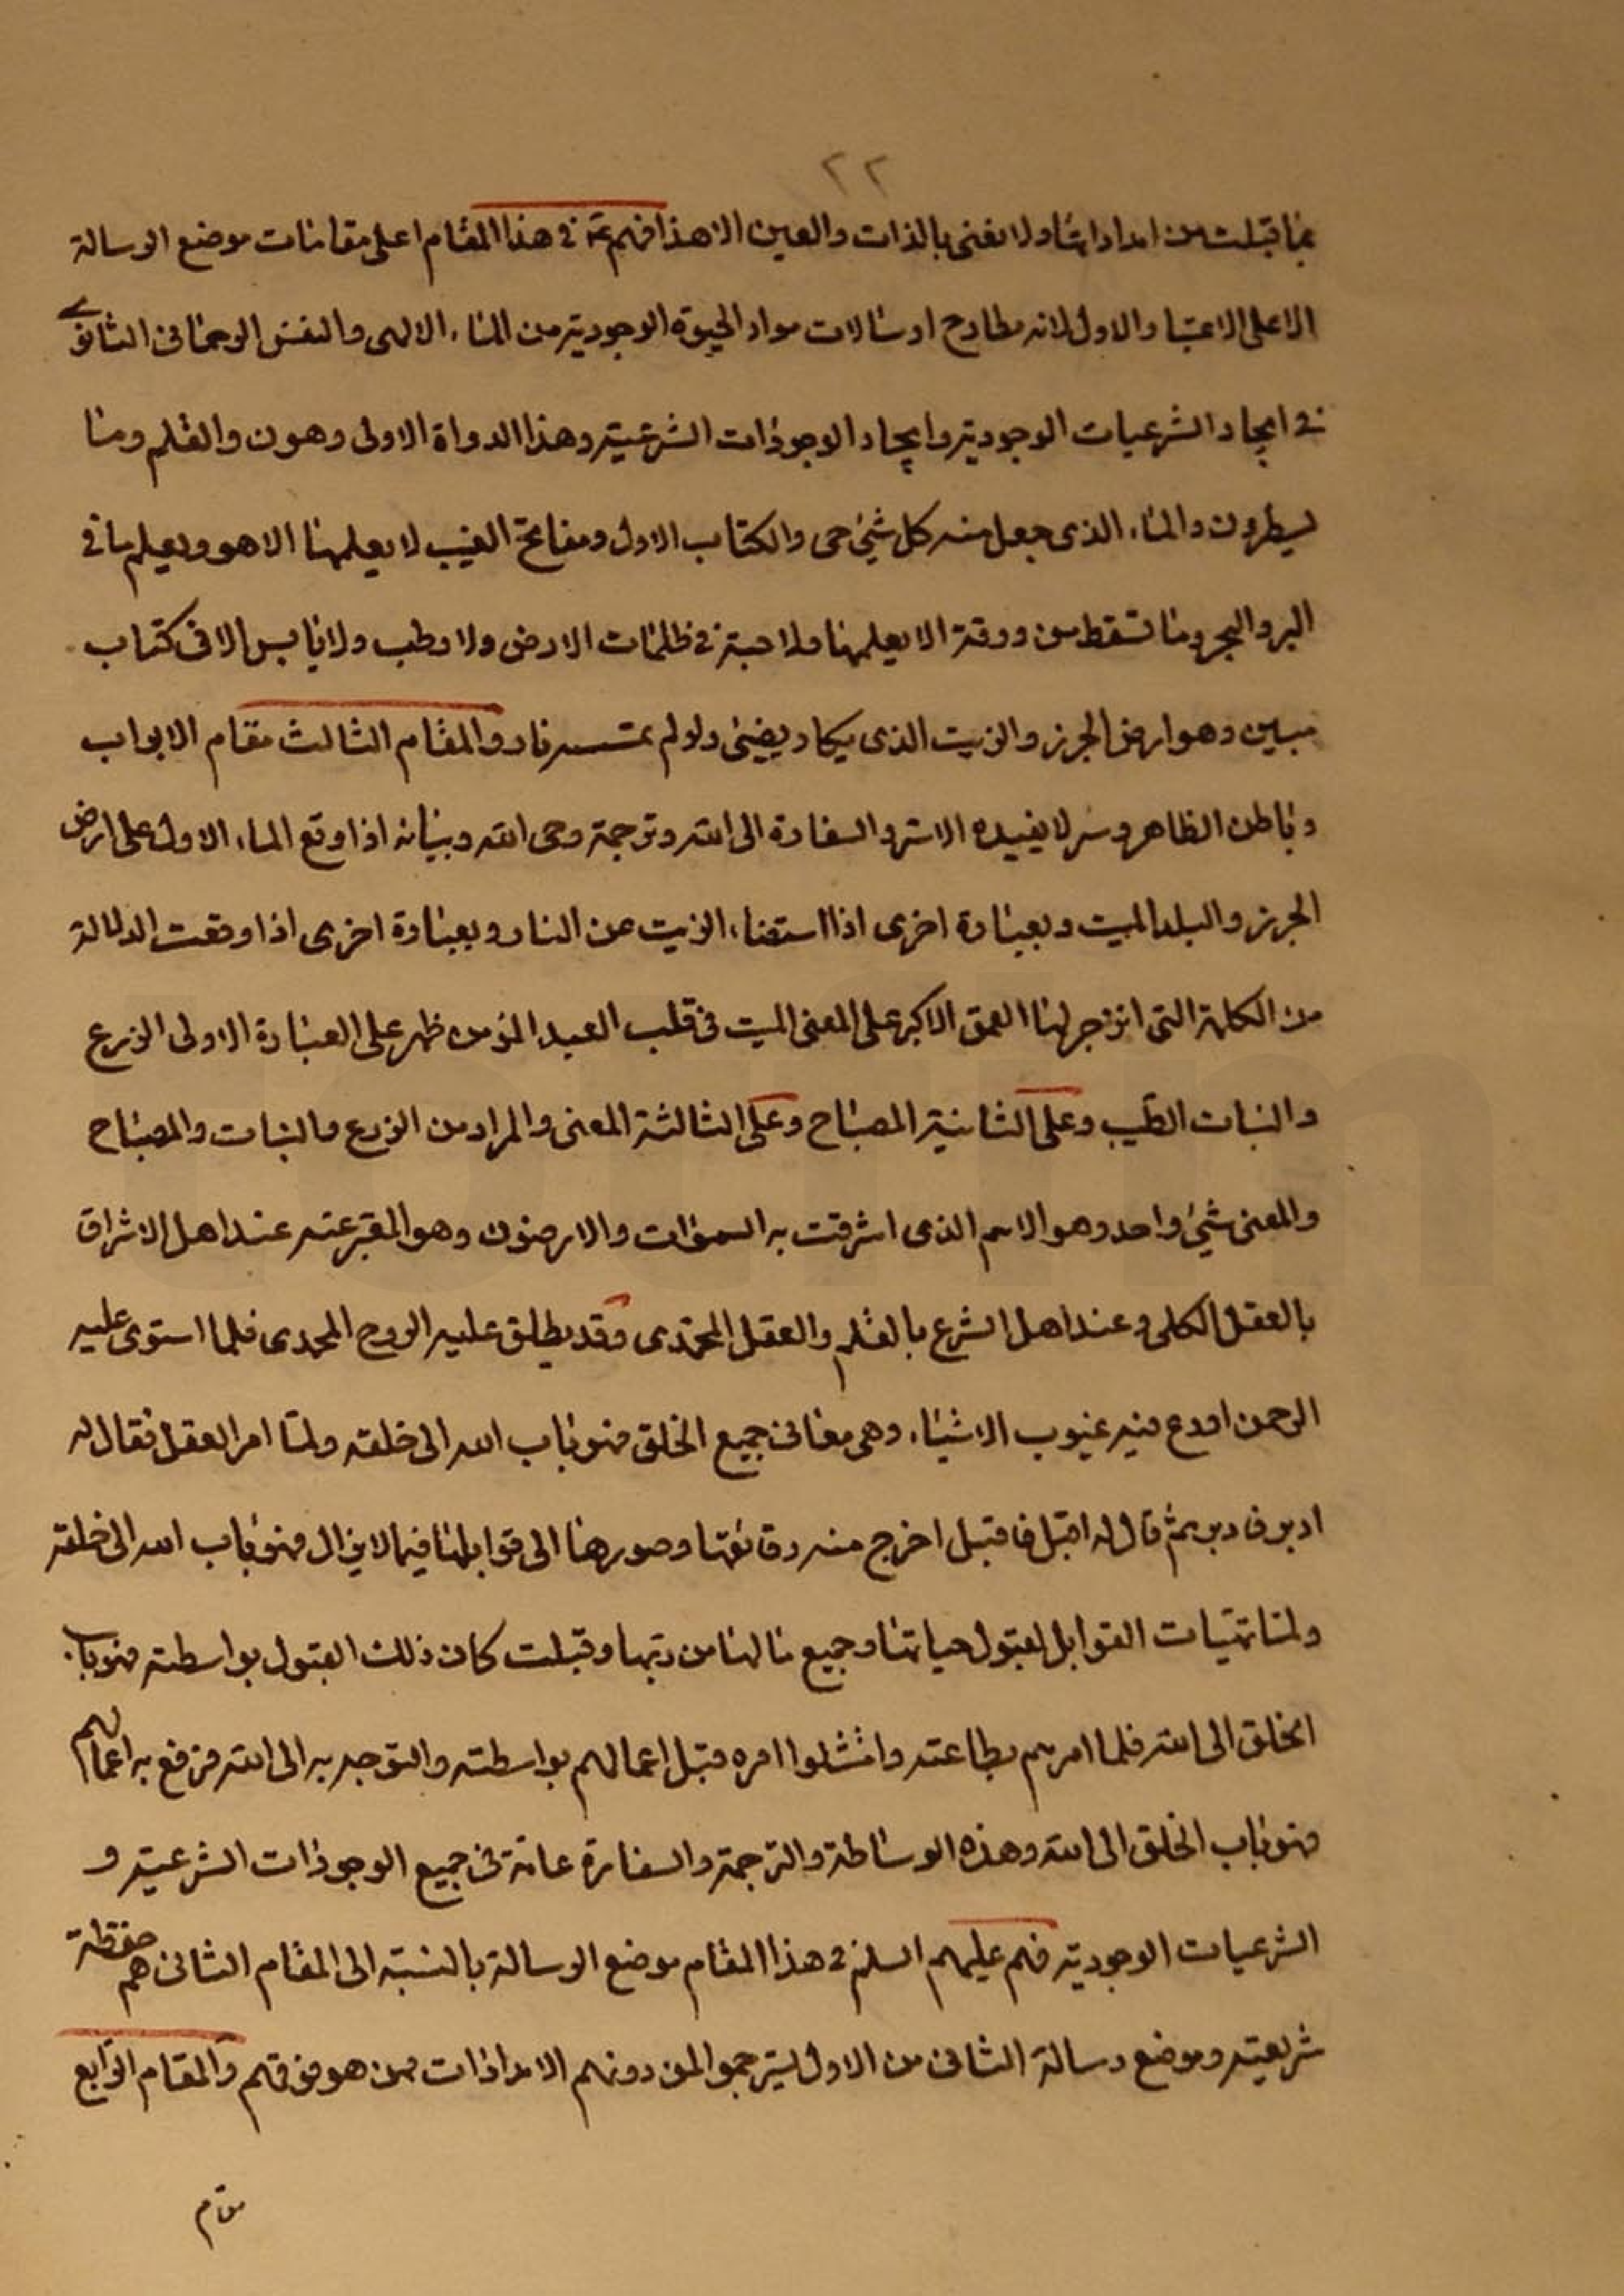 ٢٢
بما قبلت من امداداتها ولا نعنى بالذات والعين الا هذا فهم ع في هذا المقام اعلى مقامات موضع الرسالة
الا على الاعتبار الاول لانه مطارح ارسالات مواد الحيوة الوجودية من الماء الالهى والنفس الرحمانى الثانوى
في ايجاد الشرعيات الوجودية وايجاد الوجودات الشرعية وهذا الدواة الاولى وهو ن والقلم وما
يسطرون والماء الذى جعل منه كل شئ حى والكتاب الاول ومفاتح الغيب لا يعلمها الا هو ويعلم ما في
البر والبحر وما تسقط من ورقة الا يعلمها ولا حبة في ظلمات الارض ولا رطب ولا يابس الا فى كتاب
مبين وهو ارض الجرز والزيت الذى يكاد يضئ ولو لم تمسسه نار والمقام الثالث مقام الابواب
وباطن الظاهر وسر لا يفيده الا سر والسفارة الى الله وترجمة وحى الله وبيانه اذا وقع الماء الاول على ارض
الجرز والبلد الميت وبعبارة اخرى اذا استضاء الزيت عن النار وبعبارة اخرى اذا وقعت الدلالة
من الكلمة التى انزجر لها العمق الاكبر على المعنى الميت فى قلب العبد المؤمن ظهر على العبارة الاولى الزرع
والنبات الطيب وعلى الثانية المصباح وعلى الثالثة المعنى والمراد من الزرع والنبات والمصباح
والمعنى شئ واحد وهو الاسم الذى اشرقت به السموات والارضون وهو المعبر عنه عند اهل الاشراق
بالعقل الكلى وعند اهل الشرع بالقلم والعقل المحمدى وقد يطلق عليه الروح المحمدى فلما استوى عليه
الرحمن اودع فيه غيوب الاشياء وهى معانى جميع الخلق فهو باب الله الى خلقه ولما امر العقل فقال له
ادبر فادبر ثم قال له اقبل فاقبل اخرج منه رقائقها وصورها الى قوابلها فيما لا يزال فهو باب الله الى خلقه
ولما تهيئات القوابل لقبول حياتها وجميع ما لها من ربها وقبلت كان ذلك القبول بواسطته فهو باب
الخلق الى الله فلما امرهم بطاعته وامتثلوا امره قبل اعمالهم بواسطته والتوجه به الى الله فرفع به اعمالهم
فهو باب الخلق الى الله وهذه الوساطة والترجمة والسفارة عامة فى جميع الوجودات الشرعية و
الشرعيات الوجودية فهم عليهم السلم في هذا المقام موضع الرسالة بالنسبة الى المقام الثانى هم حفظة
شريعته وموضع رسالة الثانى من الاول ليترجموا لمن دونهم الامدادات ممن هو فوقهم والمقام الرابع
مقام